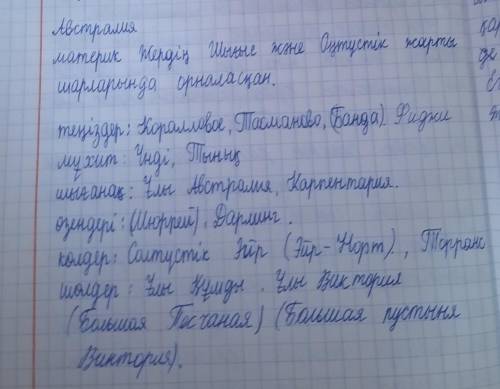 Австралия
материк Жердің Шығыс және Оңтүстік жарты
шарларында орналасқан.
теңіздер: Коралловое, Тасманово, (Банда) Фиджи
мұхит: Үнді, Тынық
шығанақ: Ұлы Австралия, Карпентария.
өзендері: (Мюррей), Дарлинг.
көлдер: Солтүстік Эйр (Эйр-Норт)., Торренс
шөлдер: Ұлы Құмды. Ұлы Виктория
(Большая Песчаная) (Большая пустыня
Виктория).